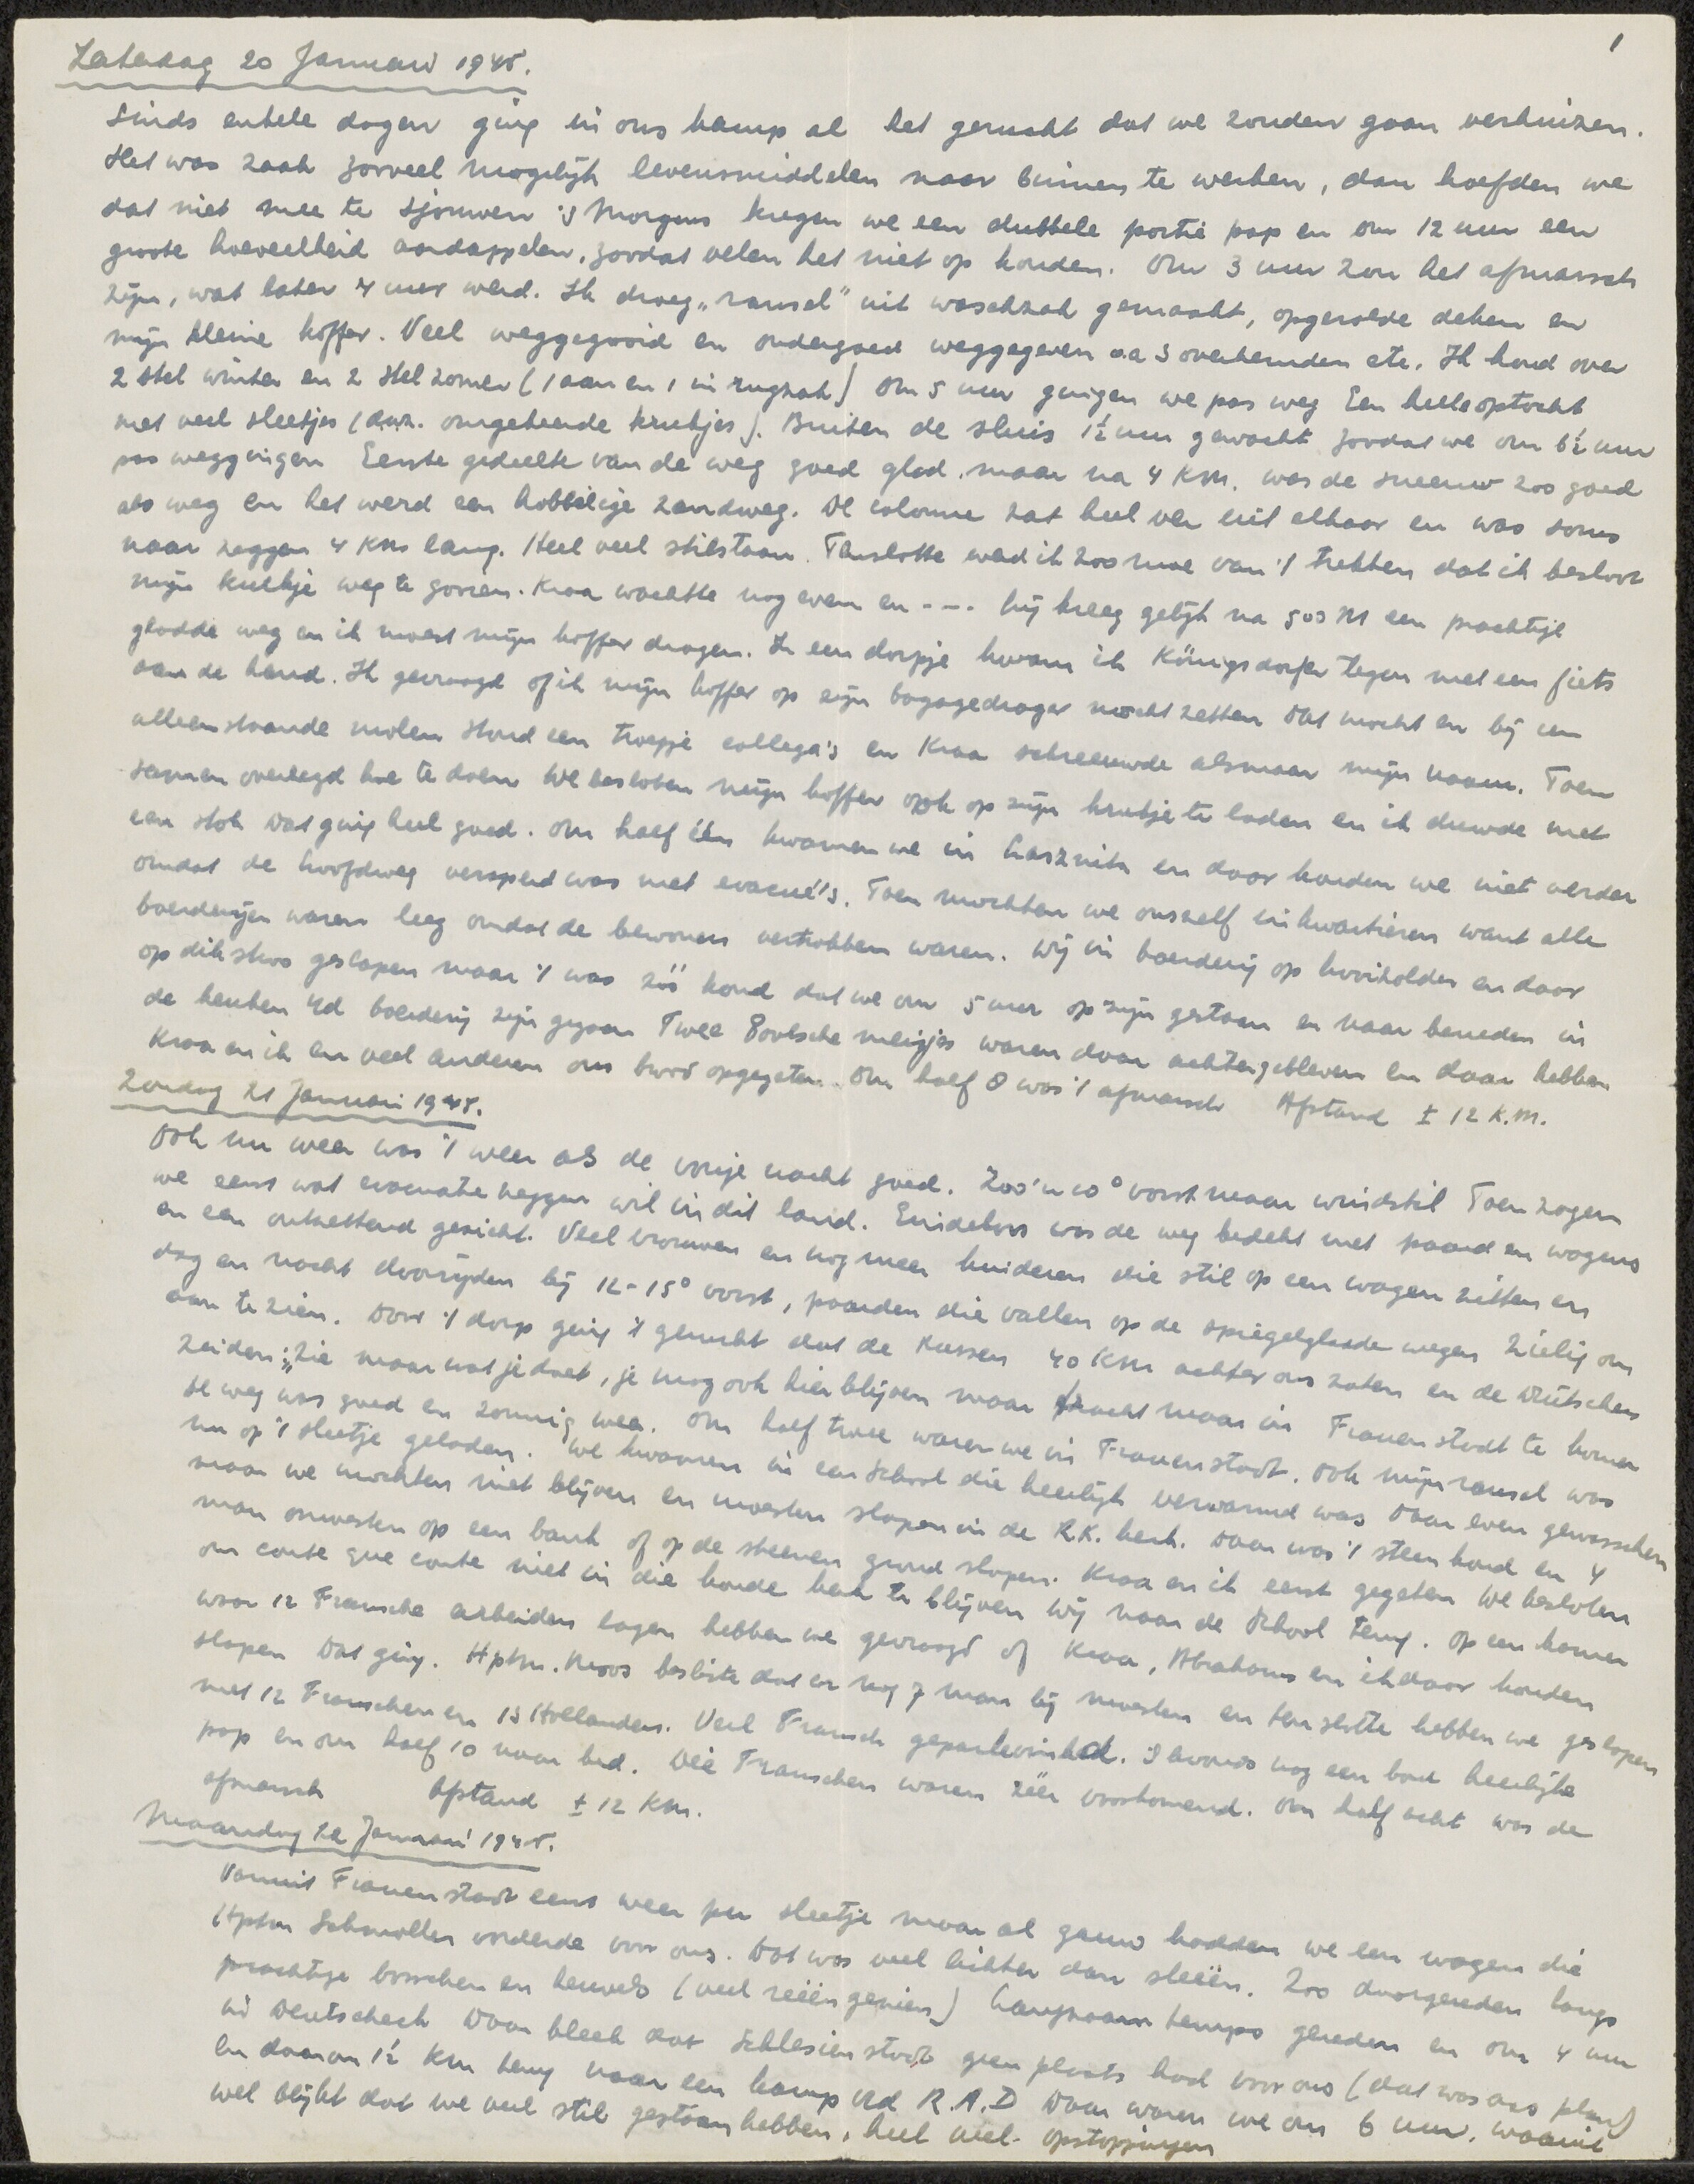 1
Zaterdag 20 Januari 1945.
Sinds enkele dagen ging in ons kamp al het gerucht dat we zouden gaan verhuizen.
Het was zaak zooveel mogelijk levensmiddelen naar binnen te werken, dan hoefden we
dat niet mee te sjouwen 's Morgens kregen we een dubbele portie pap en om 12 uur een
groote hoeveelheid aardappelen, zoodat velen het niet op konden. Om 3 uur zou het afmarsch
zijn, wat later 4 uur werd. Ik droeg „ransel" uit waschzak gemaakt, opgerolde deken en
mijn kleine koffer. Veel weggegooid en ondergoed weggegeven o.a 3 overhemden etc. Ik houd over
2 stel winter en 2 stel zomer (1 aan en 1 in rugzak) Om 5 uur gingen we pas weg Een heele optocht
met veel sleetjes (d.w.z. omgekeerde krukjes). Buiten de sluis 1½ uur gewacht zoodat we om 6½ uur
pas weggingen Eerste gedeelte van de weg goed glad, maar na 4 KM. was de sneeuw zoo goed
als weg en het werd een hobbelige zandweg. De colonne zat heel ver uit elkaar en was soms
naar zeggen 4 KM lang. Heel veel stilstaan. Tenslotte werd ik zoo moe van 't trekken dat ik besloot
mijn krukje weg te gooien. Kraa wachtte nog even en ---- hij kreeg gelijk na 500 M een prachtige
gladde weg en ik moest mijn koffer dragen. In een dorpje kwam ik Königsdorfer tegen met een fiets
aan de hand. Ik gevraagd of ik mijn koffer op zijn bagagedrager mocht zetten Dat mocht en bij een
alleenstaande molen stond een troepje collega's en Kraa schreeuwde alsmaar mijn naam. Toen
samen overlegd hoe te doen We besloten mijn koffer ook op zijn krukje te laden en ik duwde met
een stok Dat ging heel goed. Om half één kwamen we in en daar konden we niet verder
omdat de hoofdweg versperd was met evacué's. Toen mochten we onszelf inkwartieren want alle
boerderijen waren leeg omdat de bewoners vertrokken waren. Wij in boerderij op hooizolder en daar
op dik stroo geslapen maar 't was zóó koud dat we om 5 uur op zijn gestaan en naar beneden in
de keuken v/d boerderij zijn gegaan Twee Poolsche meisjes waren daar achtergebleven en daar hebben
Kraa en ik en veel anderen ons brood opgegeten. Om half 8 was 't afmarsch Afstand ± 12 K.M.
Zondag 21 Januari 1945.
Ook nu weer was 't weer als de vorige nacht goed. Zoo'n 10° vorst maar windstil Toen zagen
we eerst wat evacuatie zeggen wil in dit land. Eindeloos was de weg bedekt met paard en wagens
en een ontzettend gezicht. Veel vrouwen en nog meer kinderen die stil op een wagen zitten en
dag en nacht doorrijden bij 12-15° vorst, paarden die vallen op de spiegelgladde wegen Zielig om
aan te zien. Door 't dorp ging 't gerucht dat de Russen 40 KM achter ons zaten en de Duitschers
zeiden: „Zie maar wat je doet, je mag ook hier blijven maar tracht maar in Frauenstadt te komen
De weg was goed en zonnig weer. Om half twee waren we in Frauenstadt. Ook mijn ransel was
nu op 't sleetje geladen. We kwamen in een school die heerlijk verwarmd was Daar even gewasschen
maar we mochten niet blijven en moesten slapen in de R.K. kerk. Daar was 't steenkoud en 4
man moesten op een bank of op de steenen grond slapen. Kraa en ik eerst gegeten We besloten
om coute que coute niet in die koude kerk te blijven Wij naar de school terug. Op een kamer
waar 12 Fransche arbeiders lagen hebben we gevraagd of Kraa, Abrahams en ik daar konden
slapen Dat ging. Hptm. Moos besliste dat er nog 7 man bij moesten en ten slotte hebben we geslapen
met 12 Franschen en 13 Hollanders. Veel Fransch geparlevinkt. 's Avonds nog een bord heerlijke
pap en om half 10 naar bed. Die Franschen waren zéér voorkomend. Om half acht was de
afmarsch Afstand ± 12 KM.
Maandag 22 Januari 1945.
Vanuit Frauenstadt eerst weer per sleetje maar al gauw hadden we een wagen die
Hptm Schmoller vorderde voor ons. Dat was veel lichter dan sleeën. Zoo doorgereden langs
prachtige bosschen en heuvels (veel reeën gezien) Langzaam tempo gereden en om 4 uur
in Deutscheck Daar bleek dat Schlesienstadt geen plaats had voor ons (dat was ons plan)
En daarom 1½ KM terug naar een kamp v/d R.A.D Daar waren we om 6 uur, waaruit
wel blijkt dat we veel stil gestaan hebben, heel veel opstoppingen